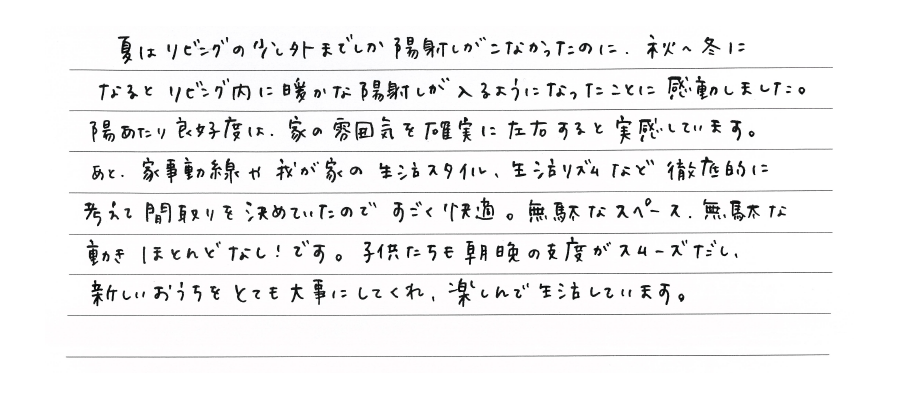 夏はリビングの少し外までしか陽射しがこなかったのに、秋〜冬に
なるとリビング内に暖かな陽射しが入るようになったことに感動しました。
陽あたり良好度は、家の雰囲気を確実に左右すると実感しています。
あと、家事動線や我が家の生活スタイル、生活リズムなど徹底的に
考えて間取りを決めていたのですごく快適。無駄なスペース、無駄な
動きほとんどなし！です。子供たちも朝晩の支度がスムーズだし、
新しいおうちをとても大事にしてくれ、楽しんで生活しています。